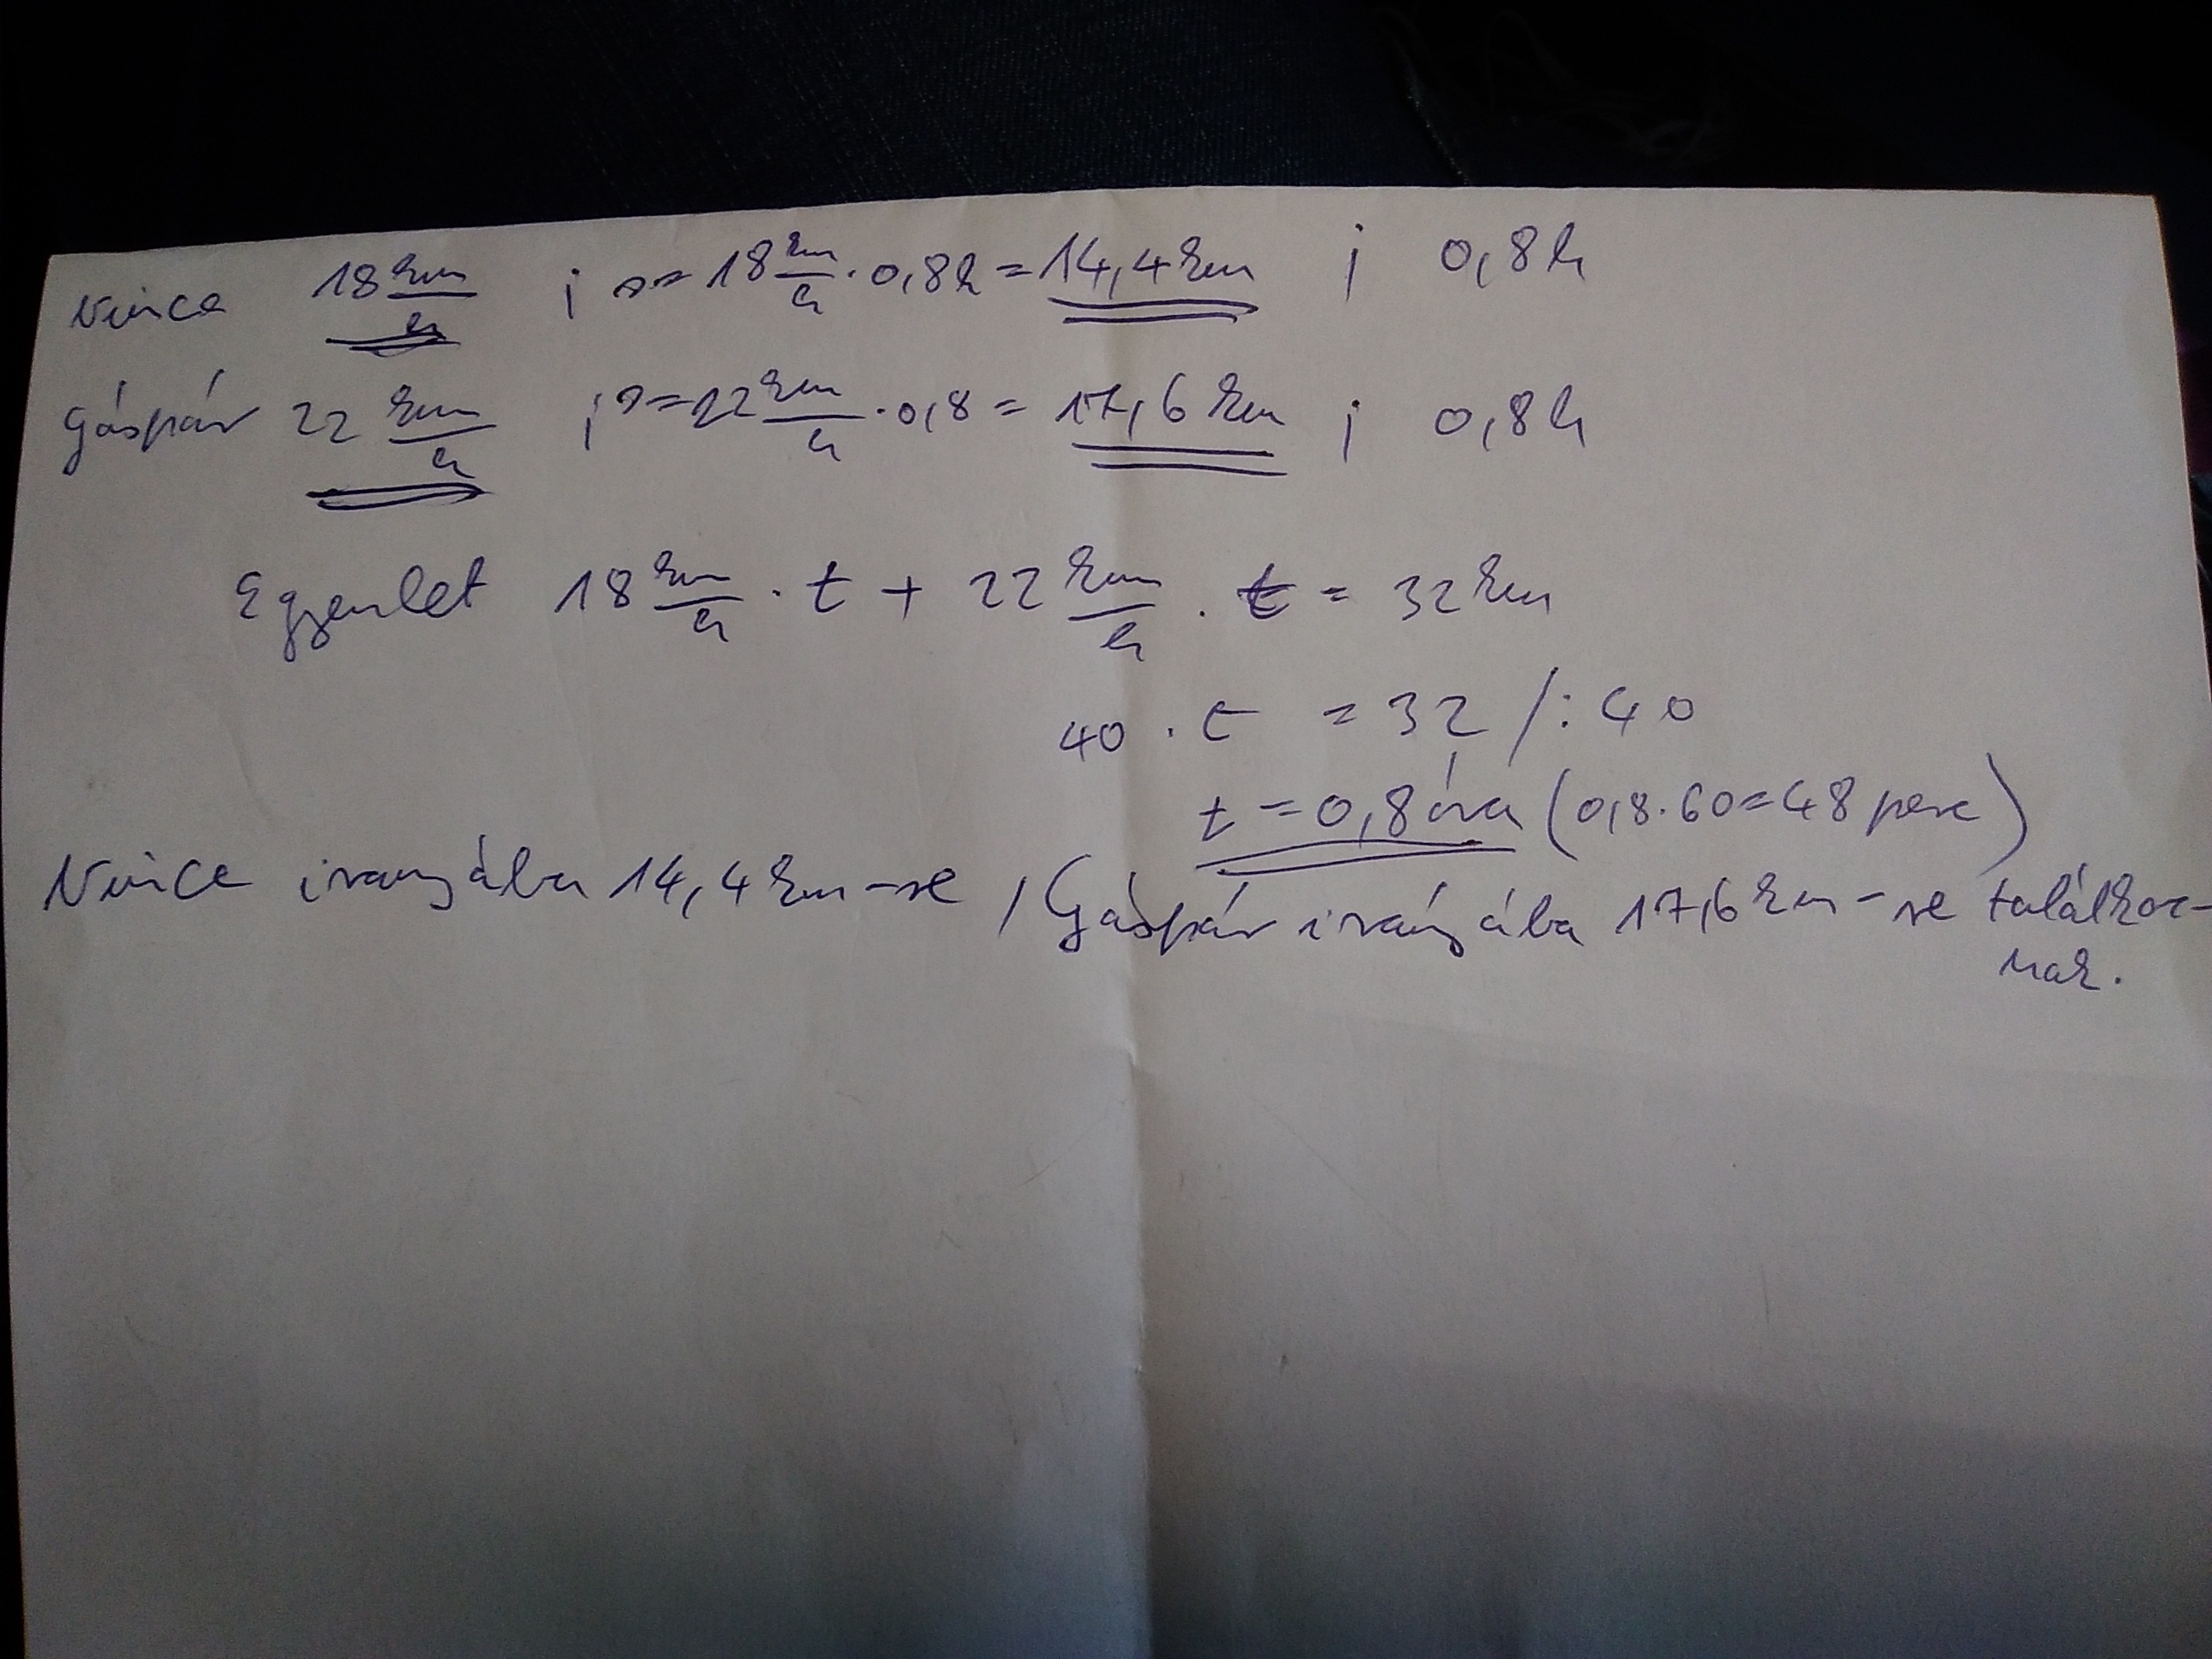 Vince 18 km/h ; s = 18 km/h · 0,8h = 14,4 km ; 0,8h
Gáspár 22 km/h ; s = 22 km/h · 0,8 = 17,6 km ; 0,8h
Egyenlet 18 km/h · t + 22 km/h · t = 32 km
40 · t = 32 /:40
t = 0,8 óra (0,8·60=48 perc)
Vince irányába 14,4 km-re, Gáspár irányába 17,6 km-re találkoz-
nak.